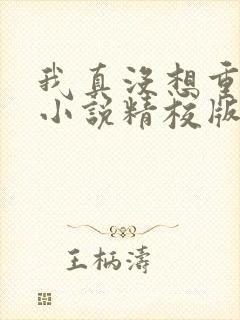 我真没想重
小说精校版
王柄濤